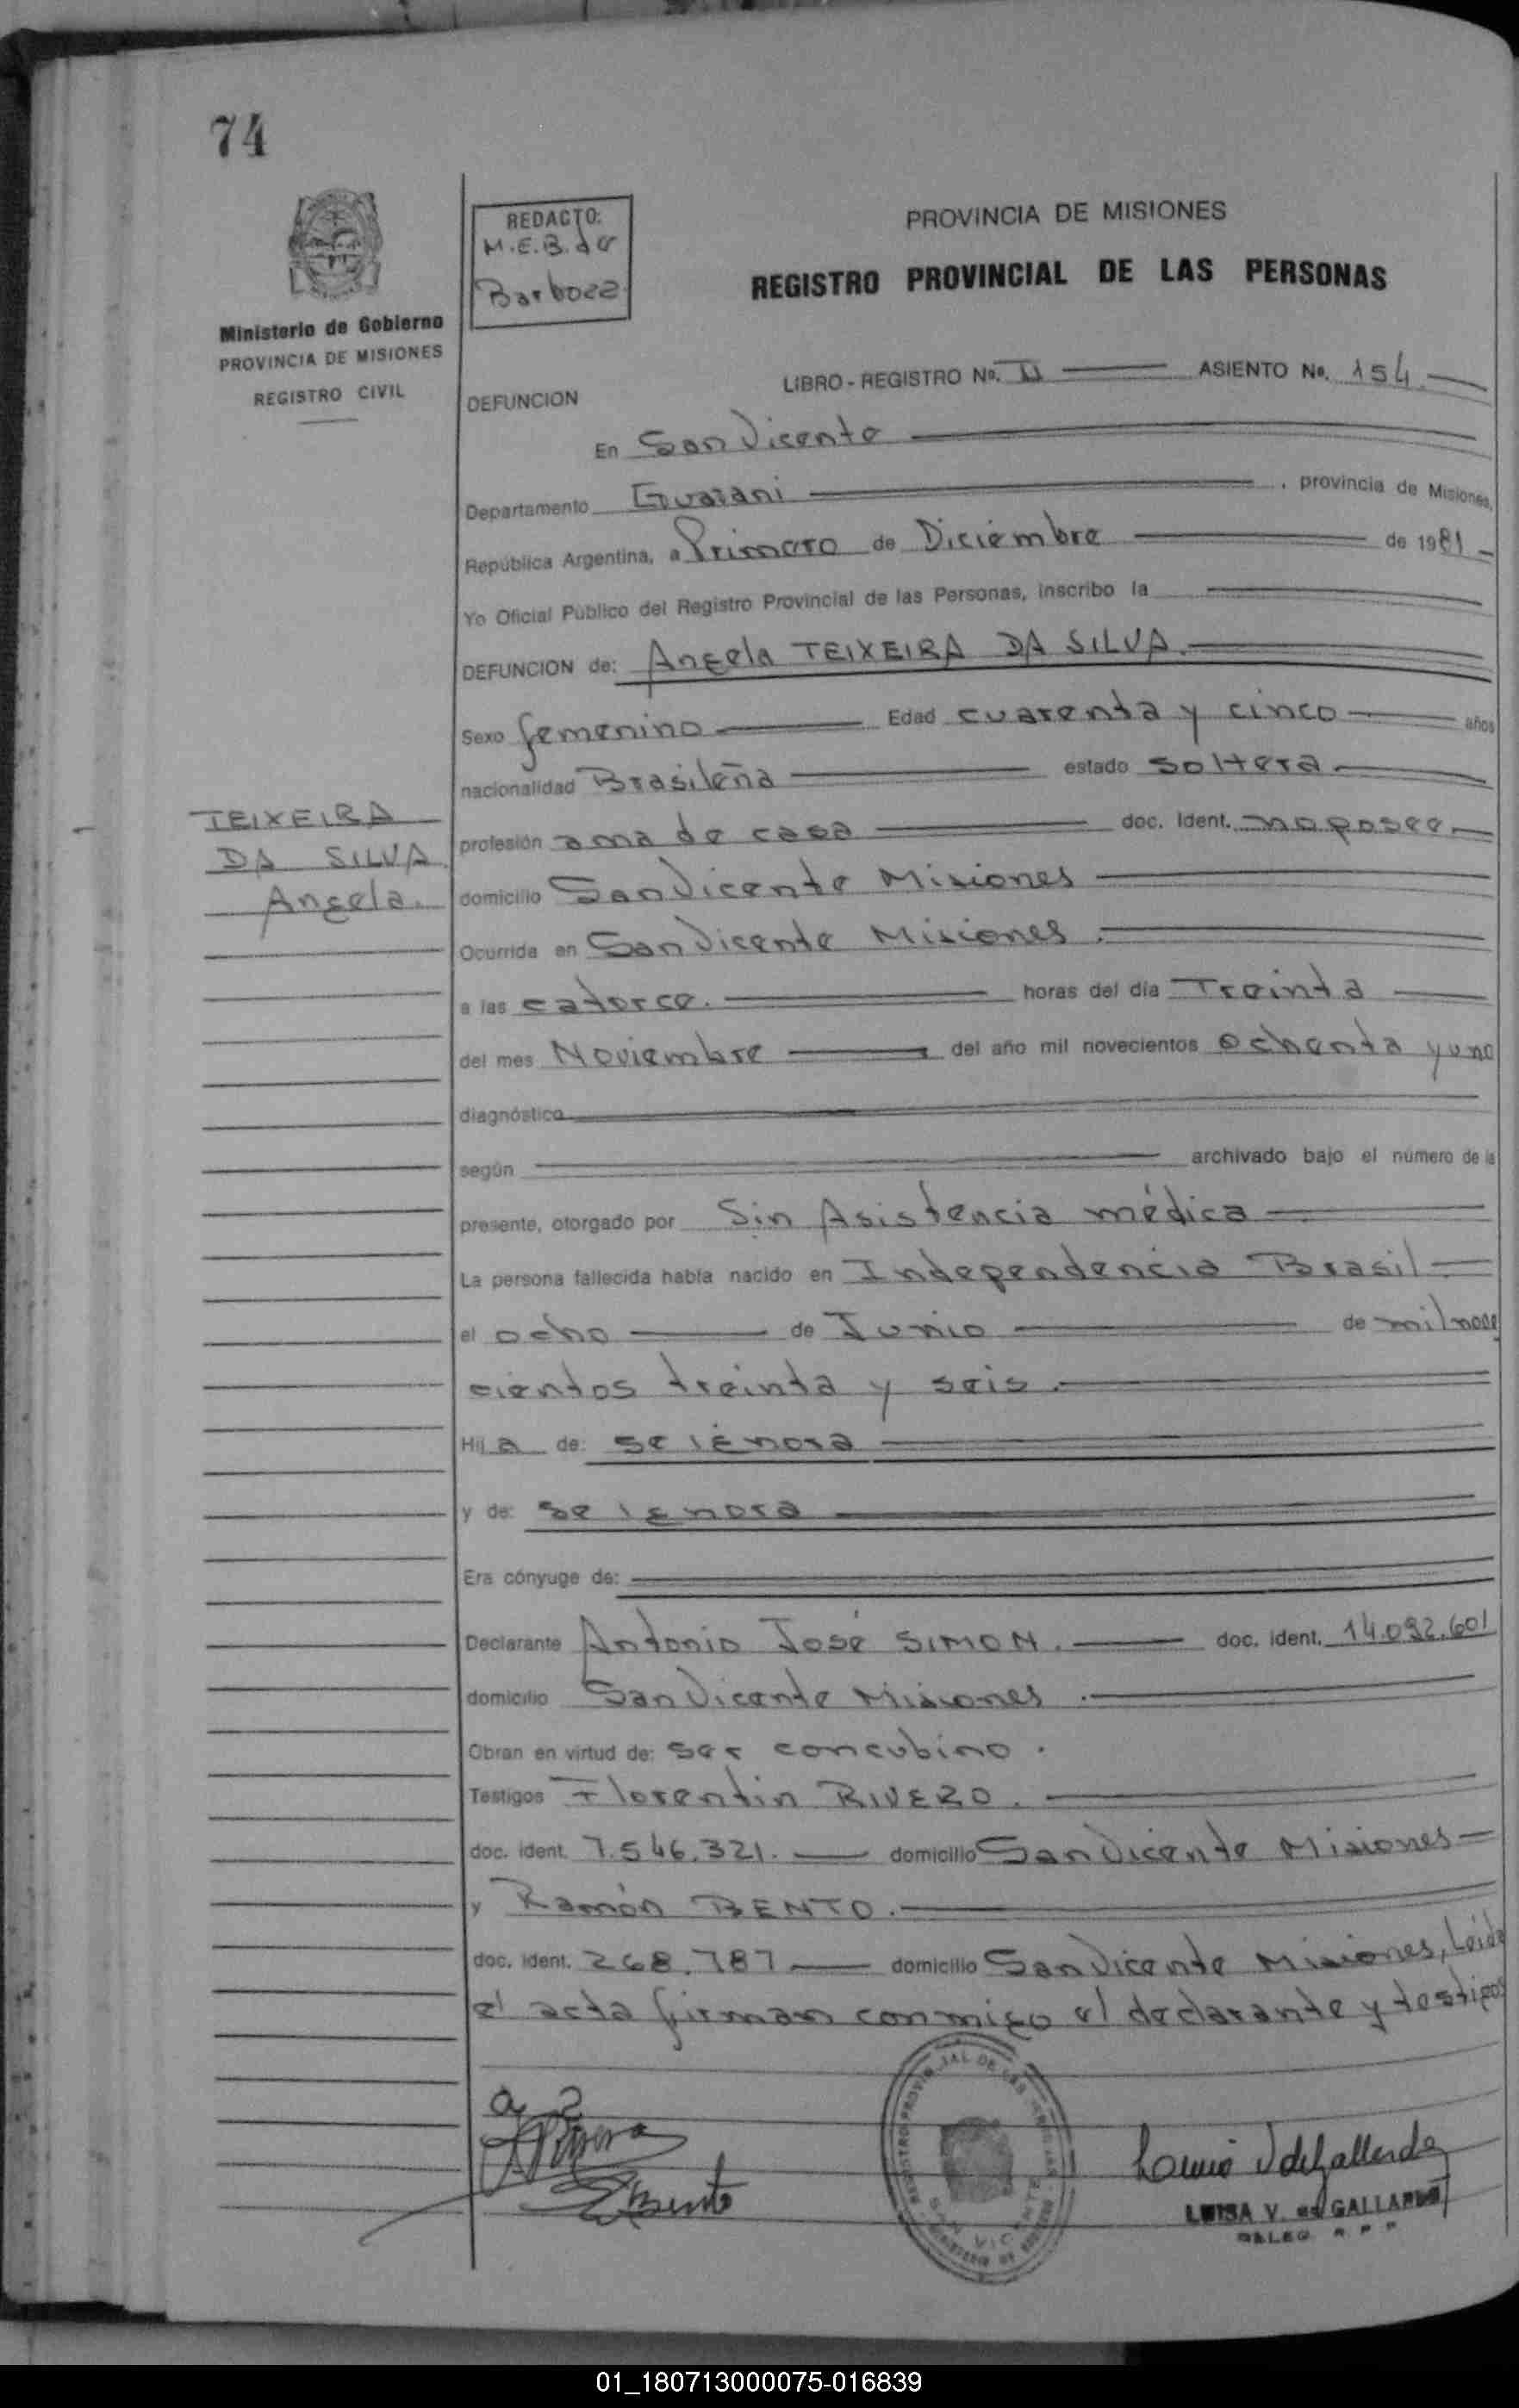 74
Ministerio de Gobierno
PROVINCIA DE MISIONES
REGISTRO CIVIL
REDACTO:
M.E.B. de
Barboza
PROVINCIA DE MISIONES
REGISTRO PROVINCIAL DE LAS PERSONAS
DEFUNCION
LIBRO - REGISTRO Nº. II ASIENTO Nº. 154
En San Vicente
Departamento Guarani , provincia de Misiones,
República Argentina, a Primero de Diciembre de 1981
Yo Oficial Público del Registro Provincial de las Personas, inscribo la
DEFUNCION de: Angela TEIXEIRA DA SILVA.
Sexo femenino Edad cuarenta y cinco años
nacionalidad Brasileña estado soltera
TEIXEIRA
DA SILVA
Angela.
profesión ama de casa doc. Ident. no posee
domicilio San Vicente Misiones
Ocurrida en San Vicente Misiones.
a las catorce. horas del día Treinta
del mes Noviembre del año mil novecientos ochenta y uno
diagnóstico
según archivado bajo el número de la
presente, otorgado por Sin Asistencia médica
La persona fallecida había nacido en Independencia Brasil
el ocho de Junio de mil nove
cientos treinta y seis.
Hija de: se ignora
y de: se ignora
Era cónyuge de:
Declarante Antonio José SIMON. doc. ident. 14.092.601
domicilio San Vicente Misiones.
Obran en virtud de: ser concubino.
Testigos Florentin RIVERO.
doc. ident. 7.546.321. domicilio San Vicente Misiones
y Ramón BENTO.
doc. ident. 268.787 domicilio San Vicente Misiones, Leida
el acta firman conmigo el declarante y testigos
REGISTRO PROVINCIAL DE LAS PERSONAS
SAN VICENTE
MINISTERIO DE GOBIERNO
Bento
LUISA V. de GALLARDO
DELEG. R P P
01_180713000075-016839